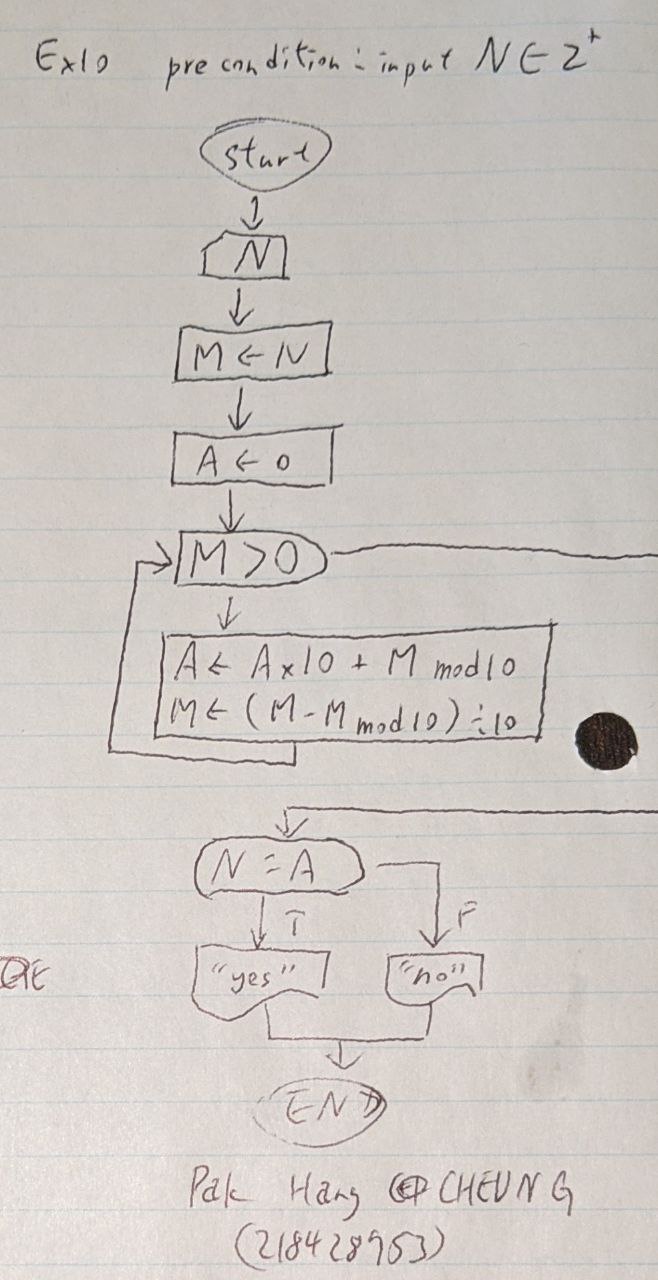 Ex10 pre condition: input N ∈ Z⁺
start
N
M ← N
A ← 0
M > 0
A ← A x 10 + M mod 10
M ← (M - M mod 10) ÷ 10
N = A
T
F
"yes"
"no"
END
Pak Hang CHEUNG
(218428953)